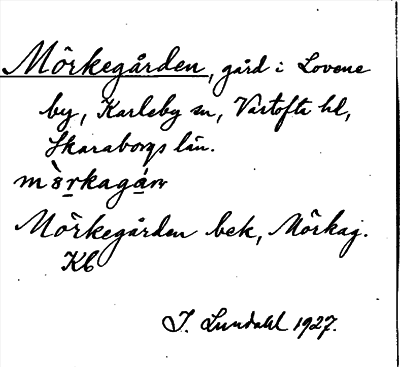 Mörkegården, gård i Lovene
by, Karleby sn, Vartofta hd,
Skaraborgs län.
Mörkegården bek, Mörkag.
Kb
I. Lundahl 1927.